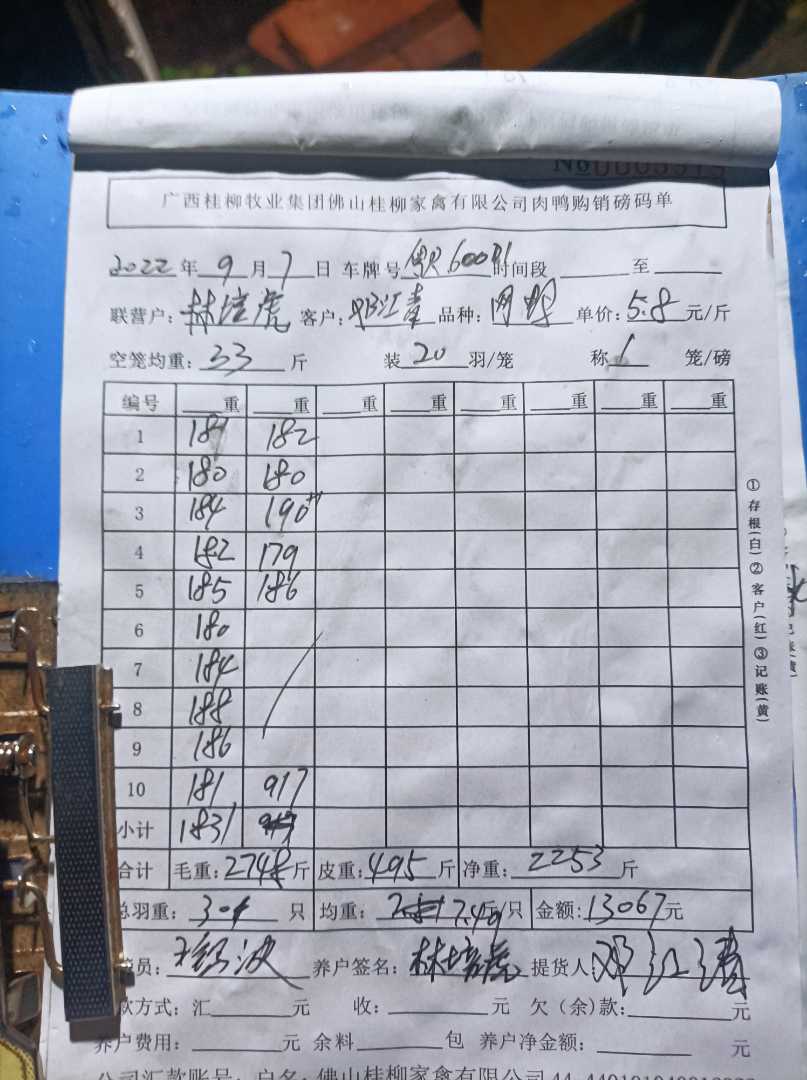 No0003313
广西桂柳牧业集团佛山桂柳家禽有限公司肉鸭购销磅码单
2022年9月7日 车牌号 时间段 至
联营户:林培虎 客户:邓江青 品种:肉鸭 单价:5.8元/斤
空笼均重:33斤 装20羽/笼 称1笼/磅
编号 重 重 重 重 重 重 重 重
1 181 182
2 180 180
3 184 190
4 182 179
5 185 186
6 180
7 184
8 188
9 186
10 181 917
小计 1831
合计 毛重:2748斤 皮重:495斤 净重:2253斤
总羽重: 只 均重: 7.49斤/只 金额:13067元
员: 养户签名:林培虎 提货人:邓江青
款方式:汇 元 收: 元 欠(余)款: 元
养户费用: 元 余料 包 养户净金额: 元
公司汇款账号:户名:佛山桂柳家禽有限公司
①存根(白)②客户(红)③记账(黄)